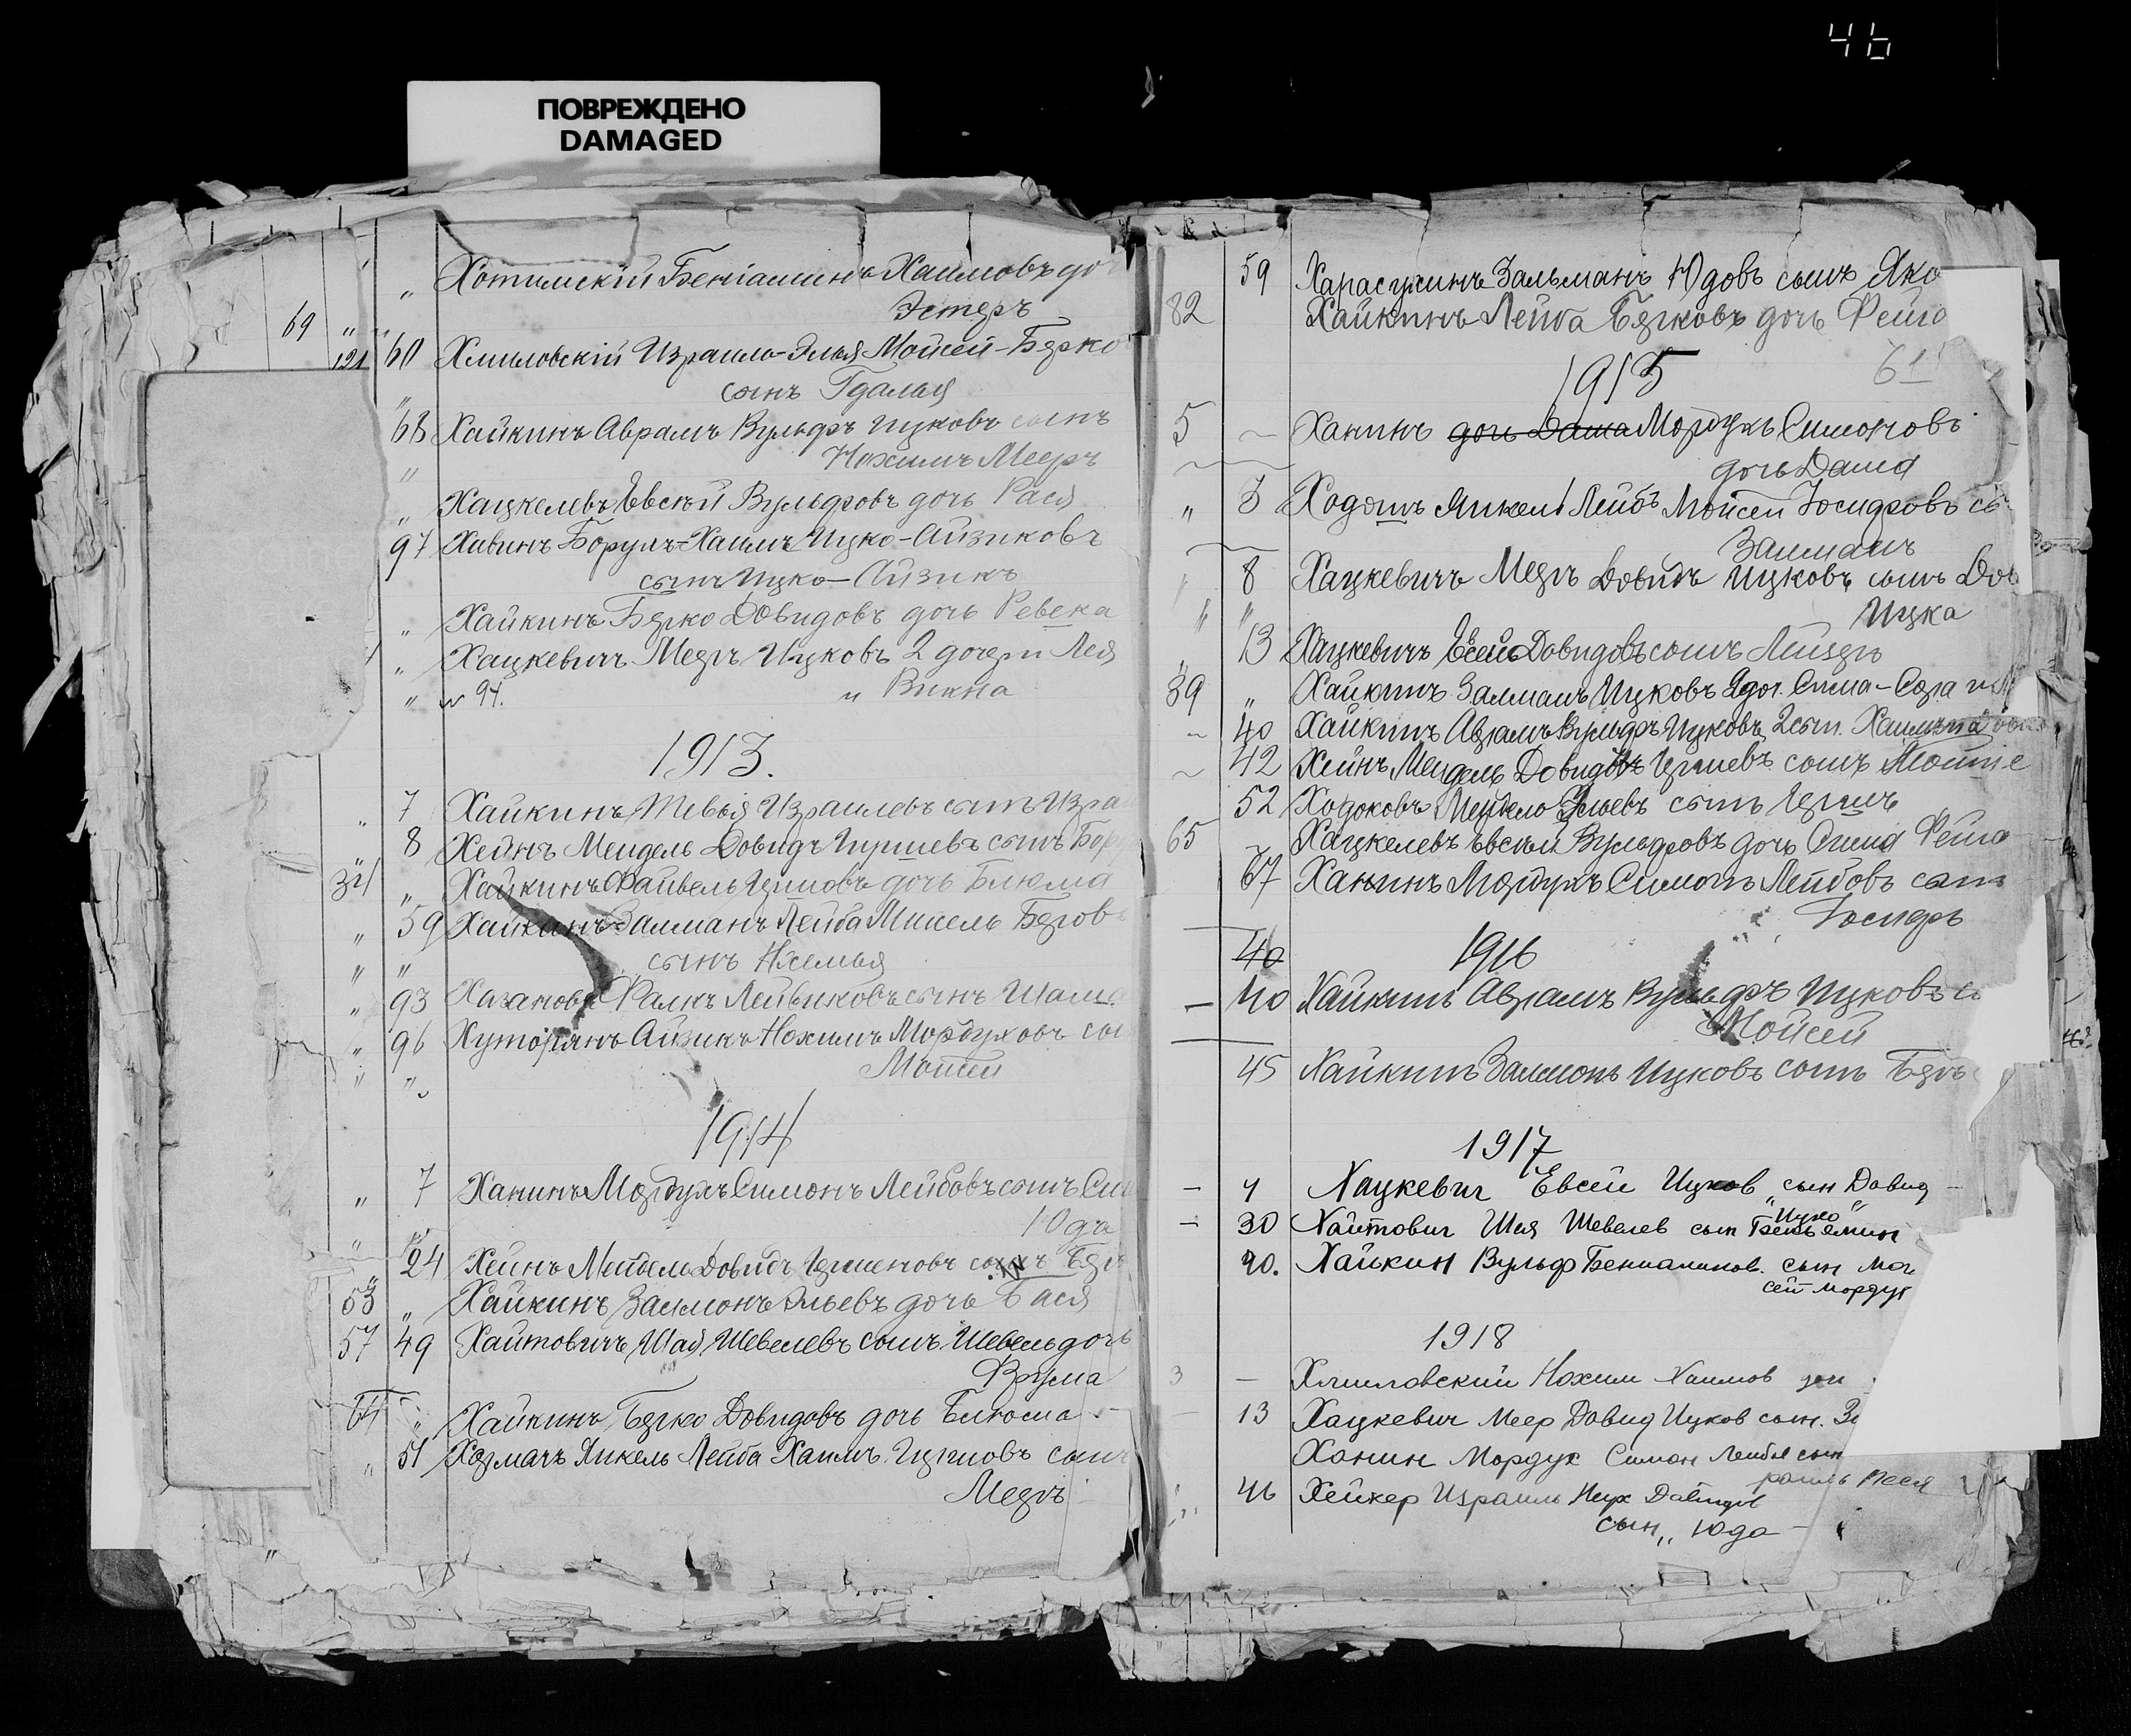 46
ПОВРЕЖДЕНО
DAMAGED
„ Хотимскій Беніаминъ Хаимовъ до
Эстеръ
69 „ „
121 60 Хмиловскій Израиль-Элья Мойсей-Берко
сынъ Гдалья
„
68 Хайкинъ Аврамъ Вульфъ Ицковъ сынъ
„ Нохимъ Мееръ
„ Хацкелевъ Евсѣй Вульфовъ дочь Рася
97 Хавинъ Борухъ-Хаимъ Ицко-Айзиковъ
сынъ Ицко-Айзикъ
„ Хайкинъ Берко Довидовъ дочь Ревека
„ Хацкевичъ Мееръ Ицковъ 2 дочери Лея
„ 94. „ Викна
1913.
„ 7 Хайкинъ Тевья Израилевъ сынъ Изра
„ 8 Хейнъ Мендель Довидъ Гиршевъ сынъ Бору
34 „ Хайкинъ Файвель дочь Блюма
„ 59 Хайкинъ Залманъ Лейба Михель Берков
„ „ сынъ
„ 93 Хазановъ Фалкъ Лейвиковъ сынъ
„ 96 Хуторянъ Айзикъ Нохимъ Мордуховъ сы
„ „ Мойсей
1914
„ 7 Ханинъ Мордухъ Симонъ Лейбовъ сынъ
„ Юда
24 Хейнъ Мендель Довидъ
53 „ Хайкинъ Залмонъ Эльевъ дочь Бася
57 49 Хаитовичъ Шая Шевелевъ сынъ Шевель дочь
Фрума
64 „ Хайкинъ Берко Довидовъ дочь Блюма
„ 51 Хозмачъ Янкель Лейба Хаимъ Гиршовъ сынъ
Мееръ
59 Зальманъ Юдовъ сынъ Яко
82 Хайкинъ Лейба Берковъ дочь Фейга
1915 61
5 ~ Ханинъ дочь Даша Мордухъ Симоновъ
дочь Даша
„ 5 Янкель Лейбъ Мойсей Іосифовъ сы
Залманъ
„ 8 Хацкевичъ Мееръ Довидъ Ицковъ сынъ Дов
„ „ Ицка
„ 13 Хацкевичъ Евсей Довидовъ сынъ Лейзеръ
39 „ Хайкинъ Залманъ Ицковъ 2 доч. Сима-Сора и
~ 40 Хайкинъ Аврамъ Вульфъ Ицковъ 2 сын.
~ 42 Хейнъ Мендель Довидовъ Гиршевъ сынъ
52 Ходоковъ Мендель Эльевъ сынъ Гершъ
65 Хацкелевъ Евсѣй Вульфовъ дочь Фейга
67 Ханинъ Мордухъ Симонъ Лейбовъ сынъ
Іосифъ
40 1916
— 40 Хайкинъ Аврамъ Вульфъ Ицковъ с
Мойсей
45 Хайкинъ Залмонъ Ицковъ сынъ
1917
— 4 Хацкевич Евсей Ицков „сын Довид —
Ицко“
— 30 Хаитович Шая Шевелев сын Беньямин
90. Хайкин Вульф Бениаминов. сын Мои
сей Мордух
1918
3 — Хмиловский Нохим Хаимов доч
— 13 Хацкевич Меер Давид Ицков сын.
Ханин Мордух Симон Лейбов сын
раиль Песя
46 Хейкер Израиль Нух Давидов
сын „ Юда —